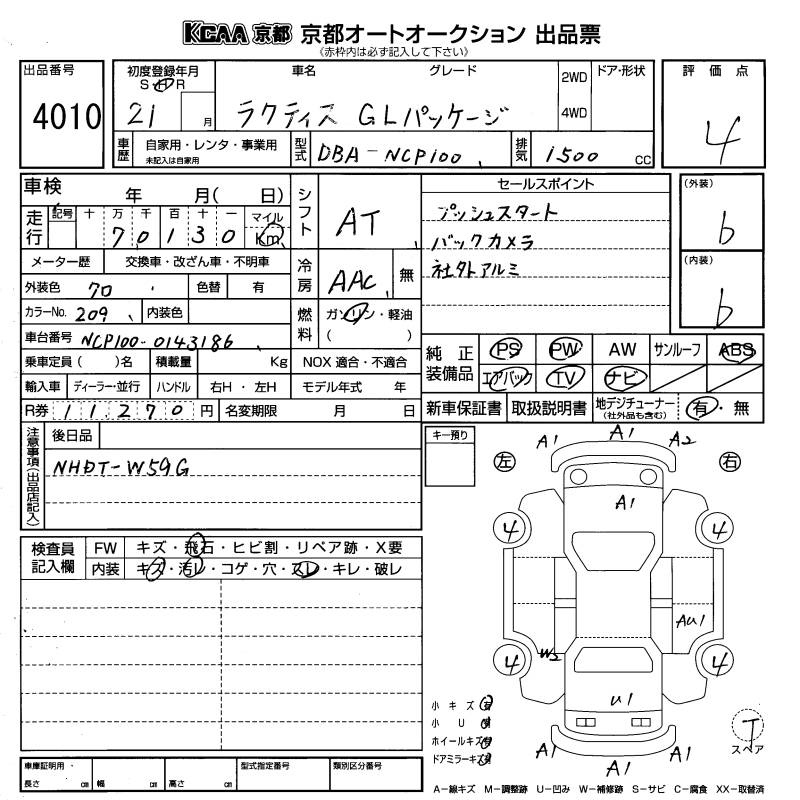 KCAA 京都 京都オートオークション 出品票
《赤枠内は必ず記入して下さい》
出品番号 4010
初度登録年月 S H R 21 月
車名 グレード ラクティス GLパッケージ
2WD 4WD ドア・形状
評価点 4
車歴 自家用・レンタ・事業用 未記入は自家用
型式 DBA-NCP100
排気 1500 CC
車検 年 月( 日)
シフト AT
セールスポイント
プッシュスタート
バックカメラ
社外アルミ
(外装) b
(内装) b
走行 記号 十 万 千 百 十 一 マイル Km
70130
メーター歴 交換車・改ざん車・不明車
冷房 AAC 無
外装色 70 色替 有
カラーNo. 209 内装色
燃料 ガソリン・軽油 ( )
車台番号 NCP100-0143186
乗車定員( )名 積載量 Kg NOX 適合・不適合
輸入車 ディーラー・並行 ハンドル 右H・左H モデル年式 年
R券 11,270 円 名変期限 月 日
純正装備品 PS PW AW サンルーフ ABS
エアバック TV ナビ
新車保証書 取扱説明書 地デジチューナー (社外品も含む) 有・無
注意事項(出品店記入)
後日品
NHDT-W59G
キー預り
検査員記入欄 FW キズ・飛石・ヒビ割・リペア跡・X要
内装 キズ・汚レ・コゲ・穴・スレ・キレ・破レ
左 右
A1 A1 A2
A1
4 4
AU1
W2
4 4
U1
A1 A1 A1
小キズ 有
小U
ホイールキズ
ドアミラーキズ
T
スペア
車庫証明用・ 型式指定番号 類別区分番号
長さ cm 幅 cm 高さ cm
A−線キズ M−調整跡 U−凹み W−補修跡 S−サビ C−腐食 XX−取替済